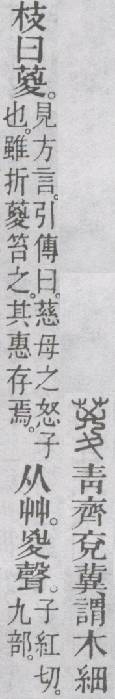 葼青齊兖冀謂木細
枝曰葼。見方言。引傳曰。慈母之怒子也。雖折葼笞之。其惠存焉。从艸。㚇聲。子紅切。九部。